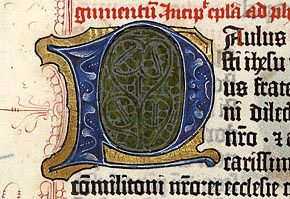 gumentū Incip̄ epl̄a ad ph
Paulus
sti ihesu
us frate
ni dilec
nr̄o · ⁊ a
carissim
cōmilitoni nr̄o: et ecclesie